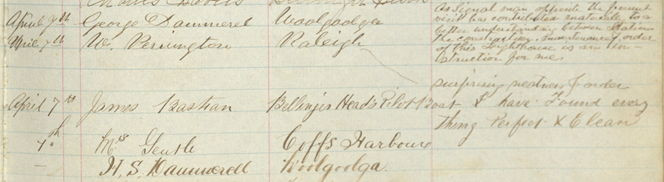 April 7th George Dammerel Woolgoolga
April 7th W. Pennington Raleigh
As signal man opposite the present
visit has contributed materially to a
better understanding between stations
the construction and order
of this Lighthouse is an in-
struction for me
April 7th James Bastian Bellinger Heads Pilot Boat
surprising neatness & order
I have Found every
Thing Perfect & Clean
7th Mrs Gentle Coffs Harbour
— H. S. Dammerell Woolgoolga.